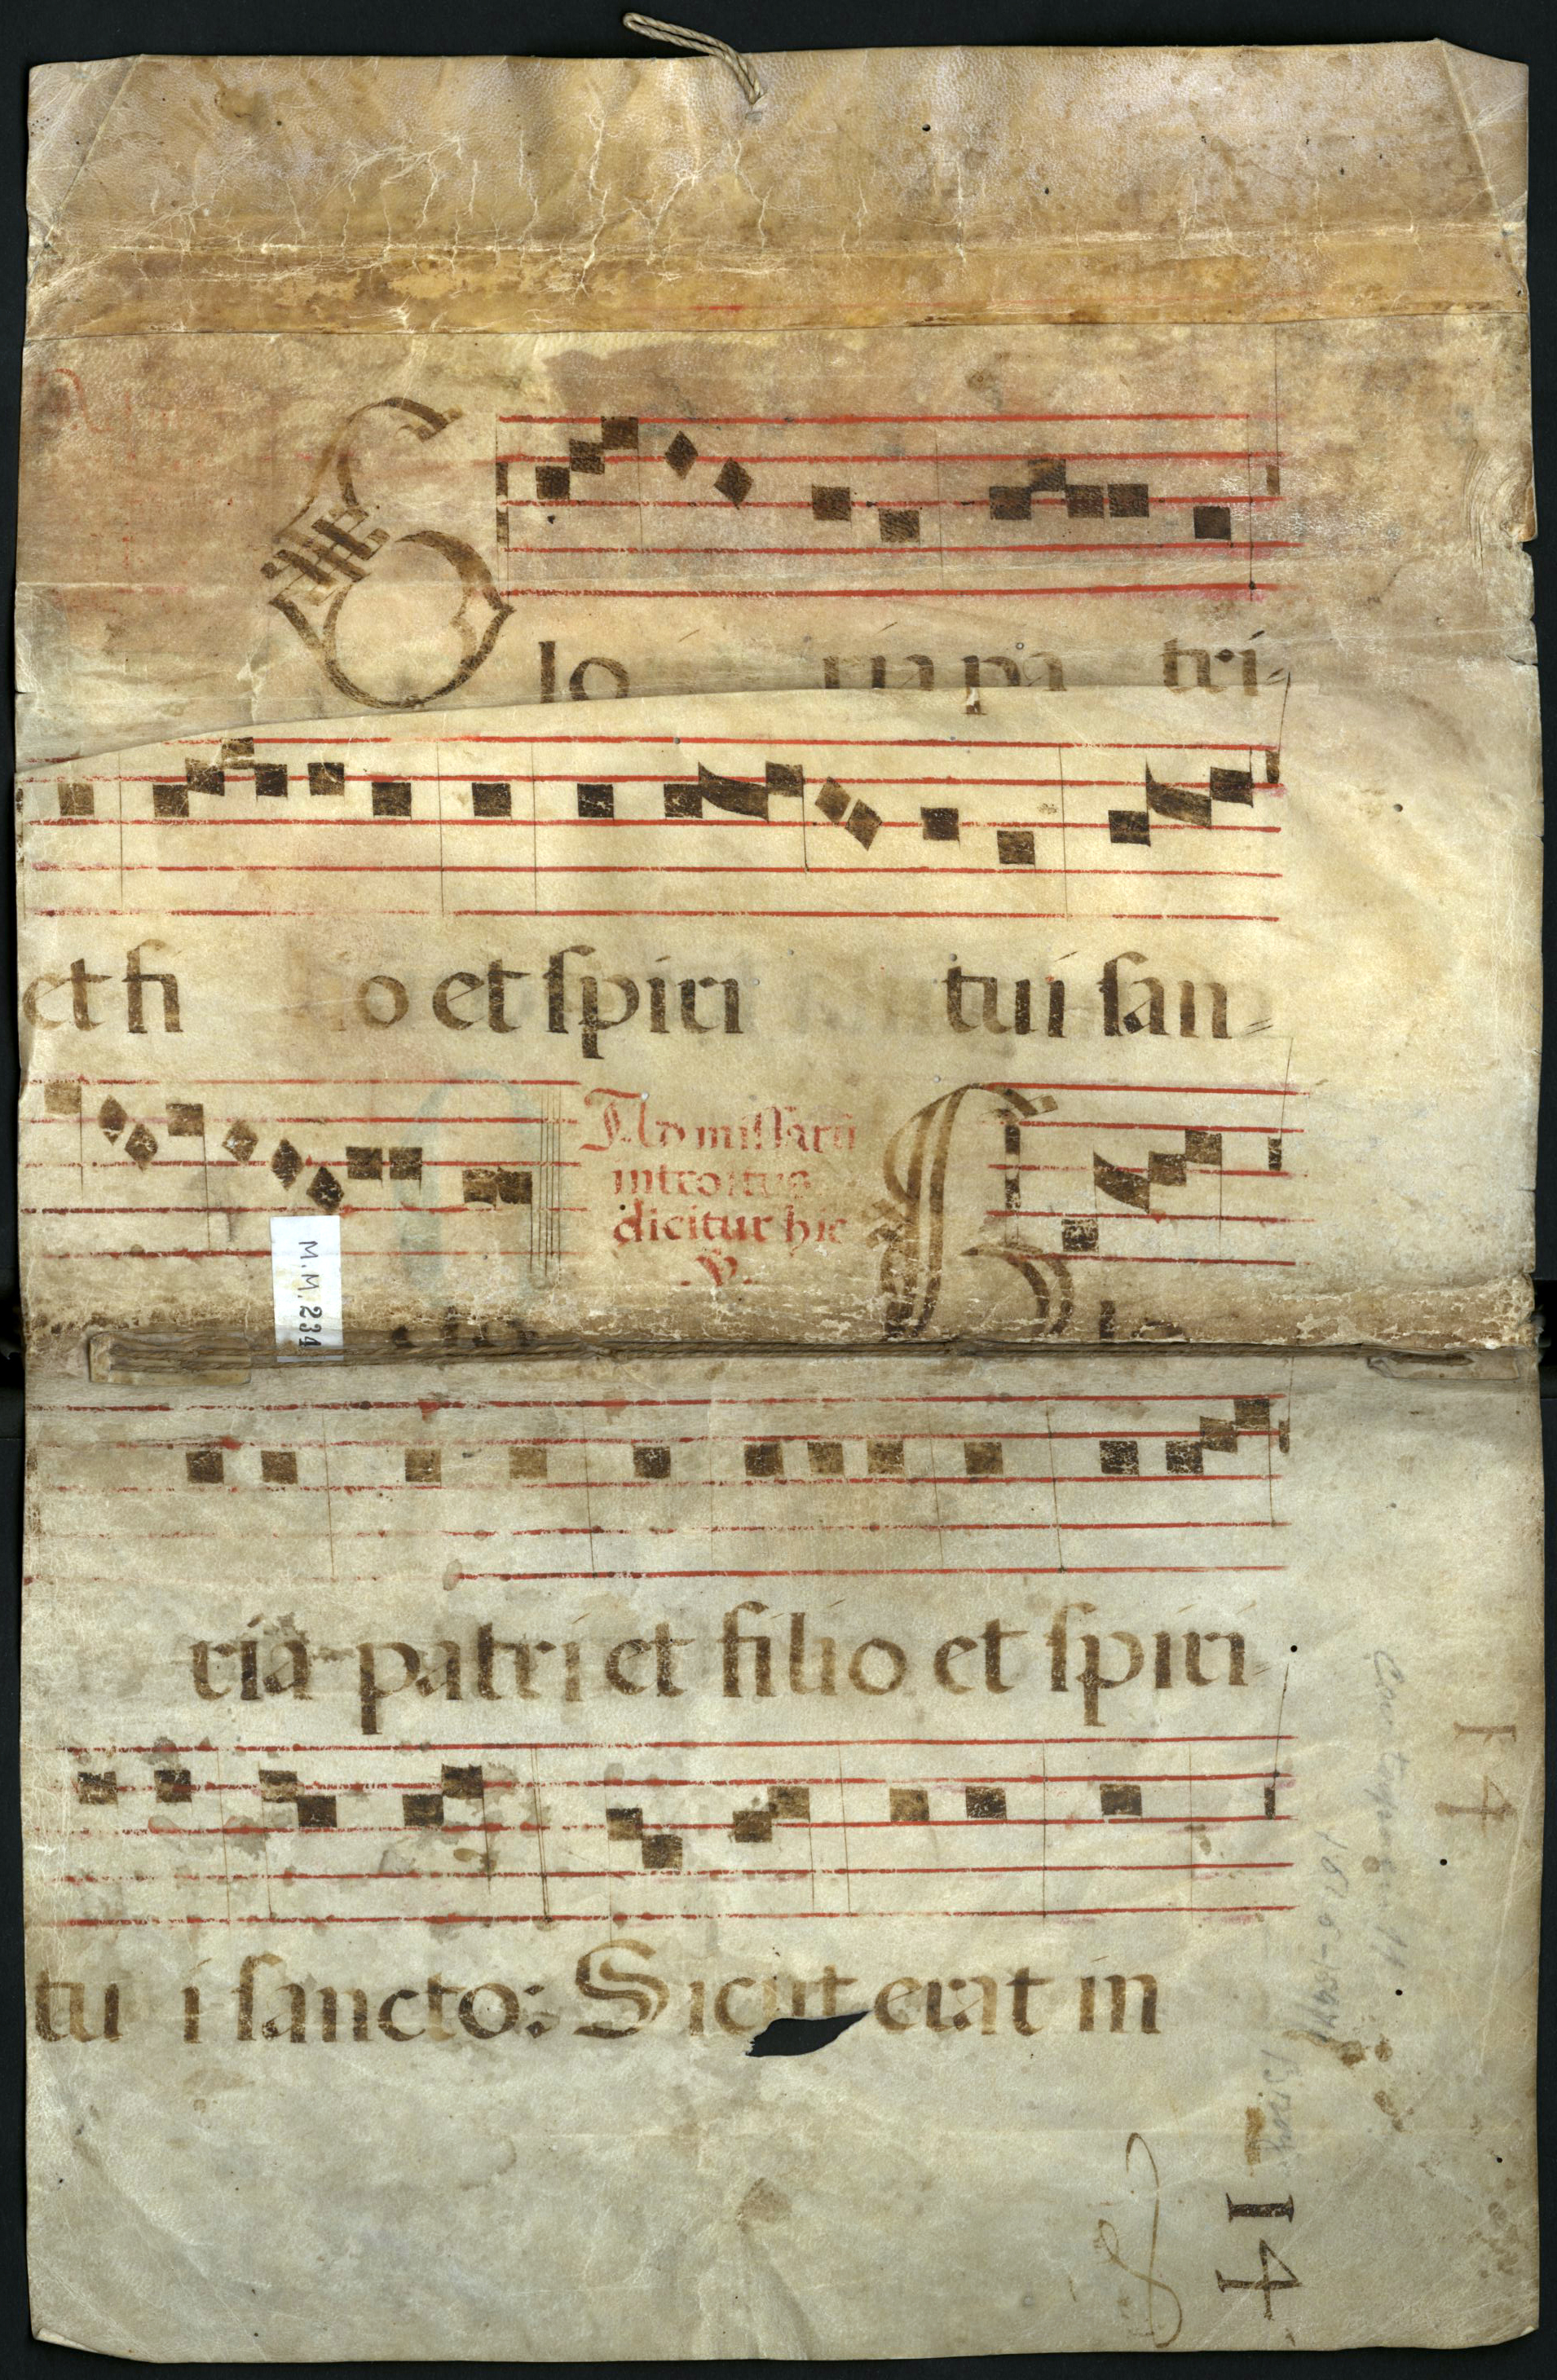 Glo ria pa tri-
et fi o et spiri tui san-
Ad missarũ
introitus
dicitur hic
.V.
M.M.234
ria patri et filio et spiri-
tu i sancto: Sicut erat in
14
14